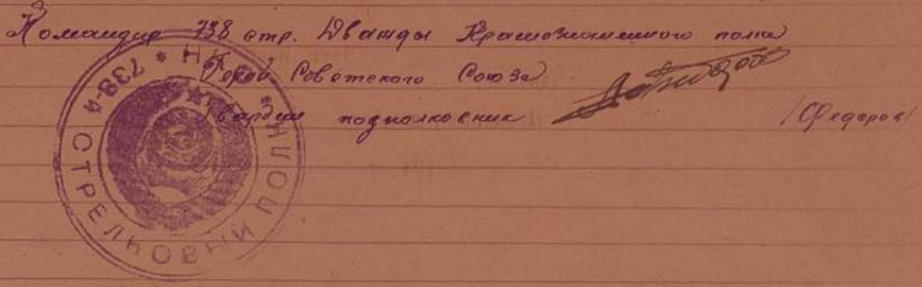 Командир 738 стр. Дважды Краснознаменного полка
Герой Советского Союза
Гвардии подполковник /Федоров/
НКО * 738-Й СТРЕЛКОВЫЙ ПОЛК *